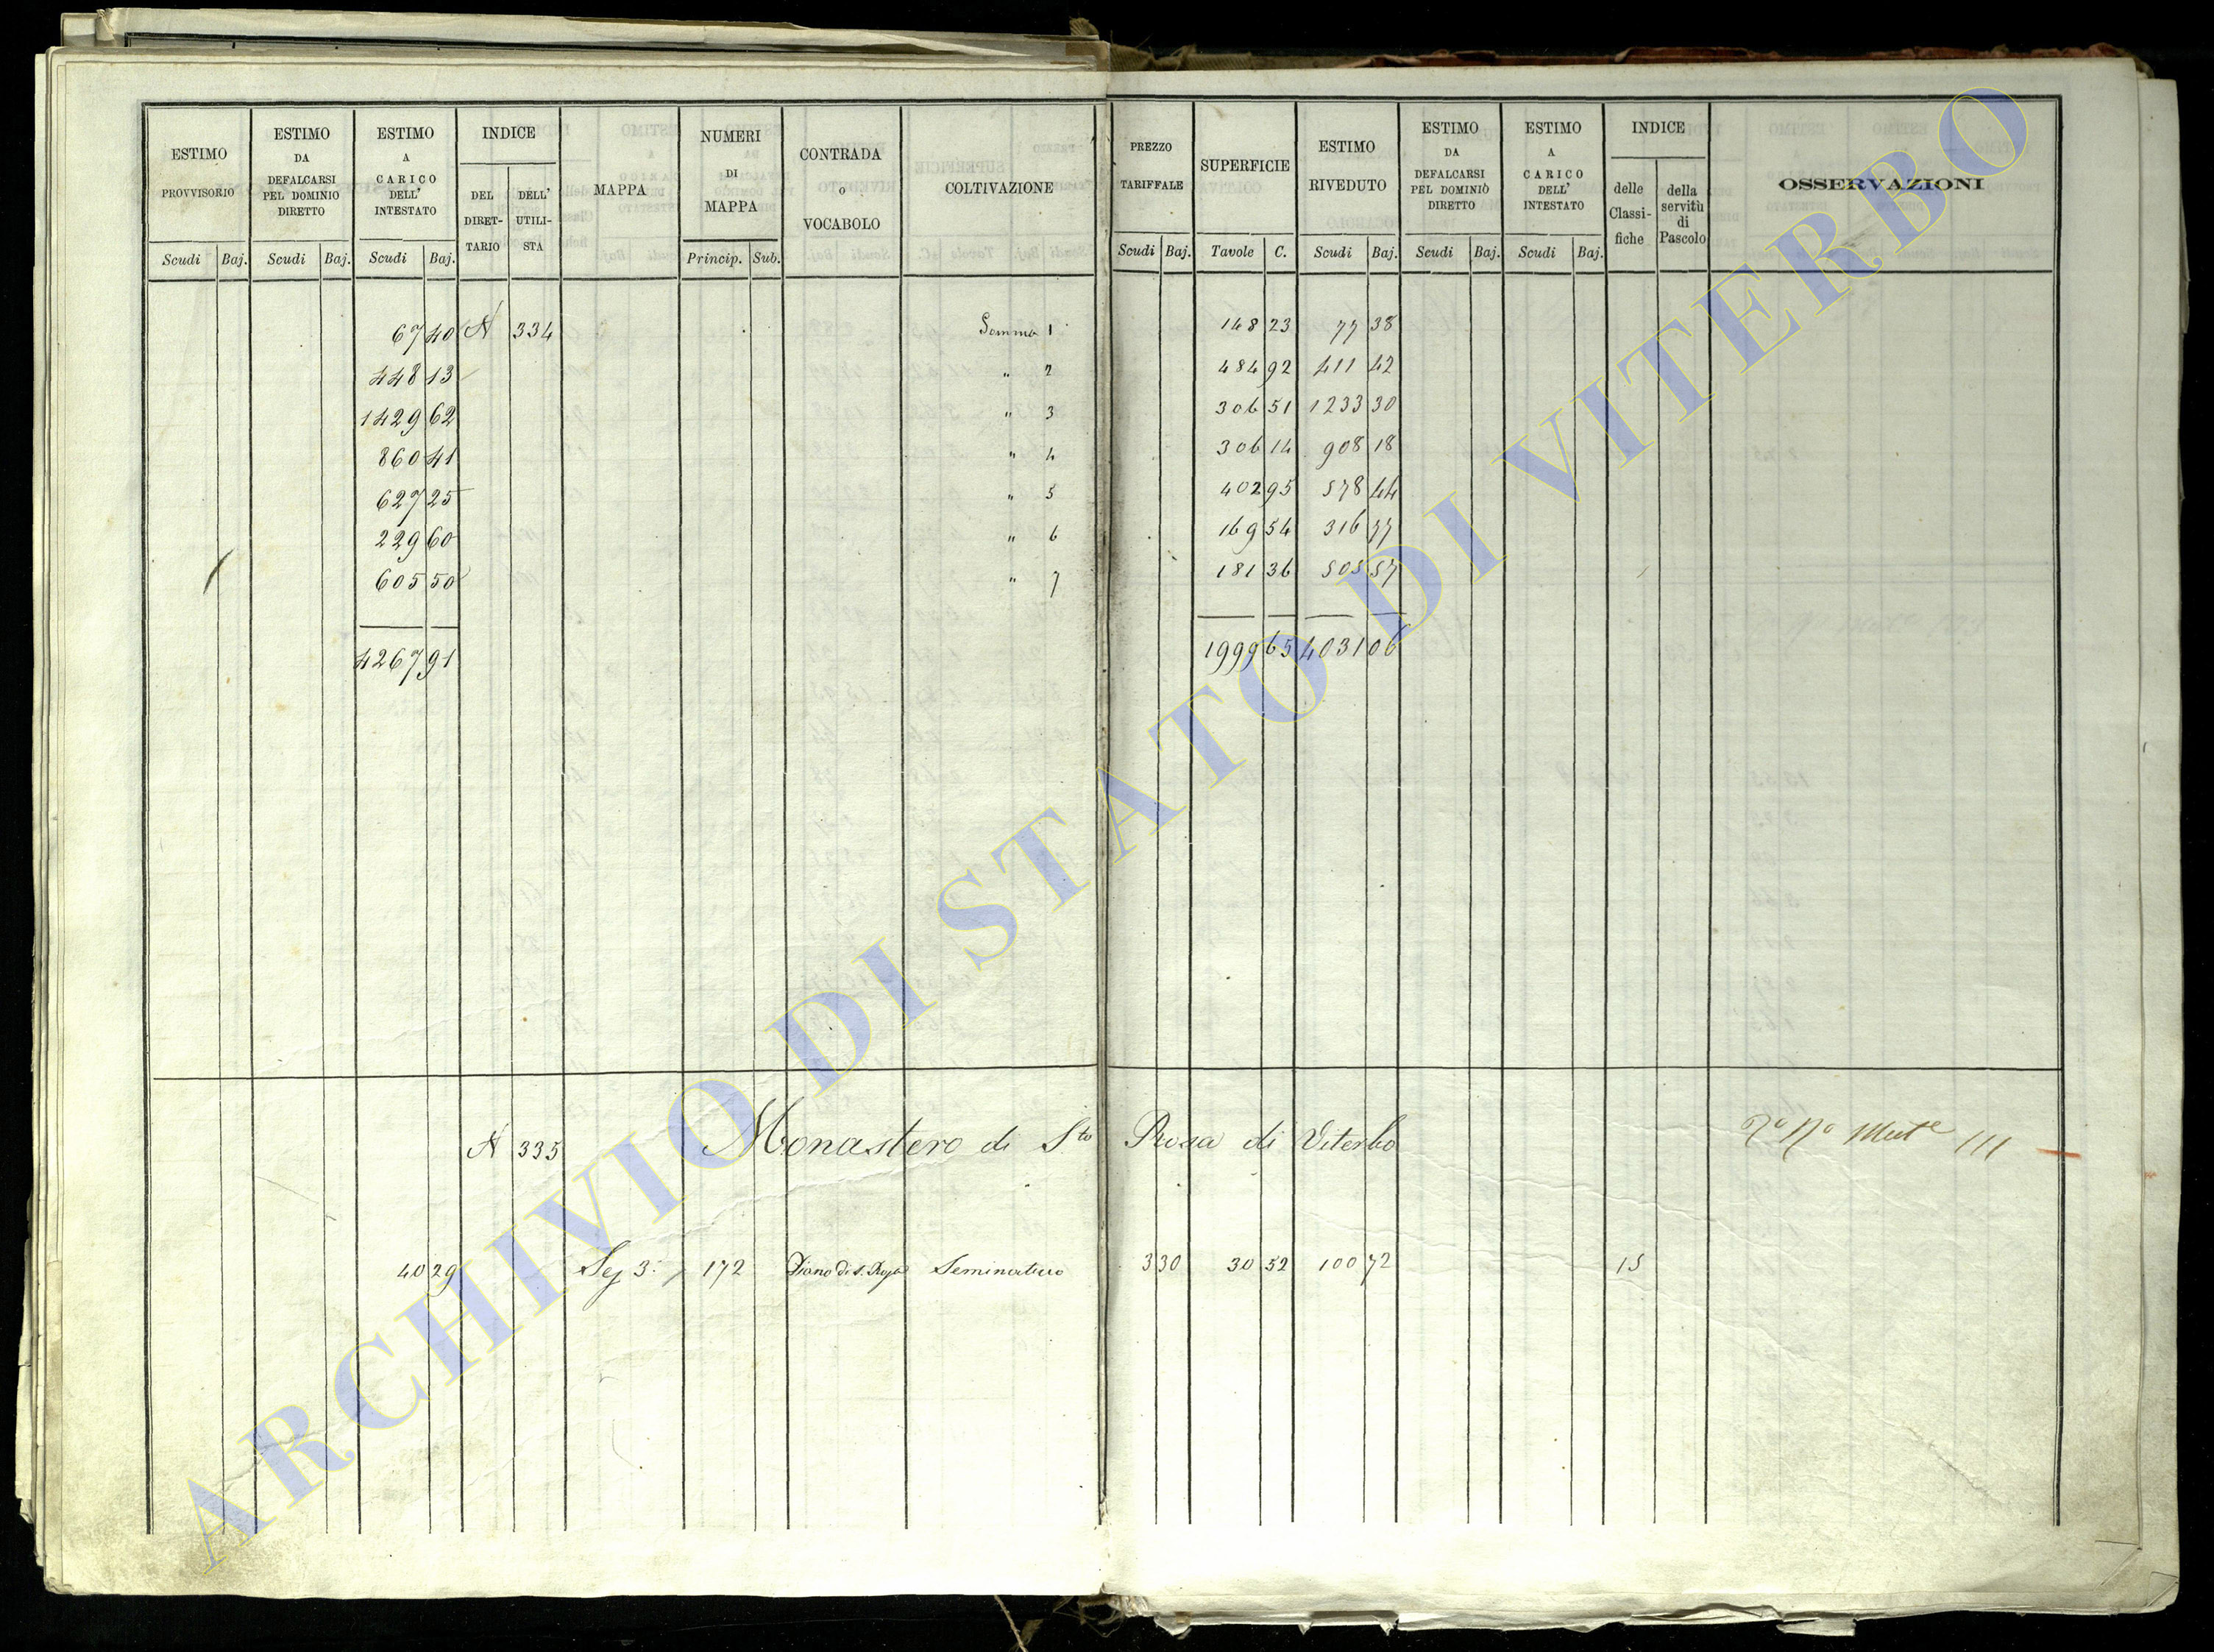 ESTIMO PROVVISORIO ESTIMO DA DEFALCARSI PEL DOMINIO DIRETTO ESTIMO A CARICO DELL' INTESTATO INDICE DEL DIRET-TARIO DELL' UTILI-STA MAPPA NUMERI DI MAPPA CONTRADA O VOCABOLO COLTIVAZIONE PREZZO TARIFFALE SUPERFICIE ESTIMO RIVEDUTO ESTIMO DA DEFALCARSI PEL DOMINIO DIRETTO ESTIMO A CARICO DELL' INTESTATO INDICE delle Classi-fiche della servitù di Pascolo OSSERVAZIONI
Scudi Baj. Scudi Baj. Scudi Baj. Princip. Sub. Scudi Baj. Tavole C. Scudi Baj. Scudi Baj. Scudi Baj.
67 40 N 334 Somma 1 148 23 77 38
448 13 " 2 484 92 411 42
1429 62 " 3 306 51 1233 30
860 41 " 4 306 14 908 18
627 25 " 5 402 95 578 44
229 60 " 6 169 54 316 77
605 50 " 7 181 36 505 57
4267 91 1999 65 4031 06
N 335 Monastero di S.ta Rosa di Viterbo 111
40 29 Sez 3. 172 Piano di S. Seminativo 3 30 30 52 100 72 15
ARCHIVIO DI STATO DI VITERBO